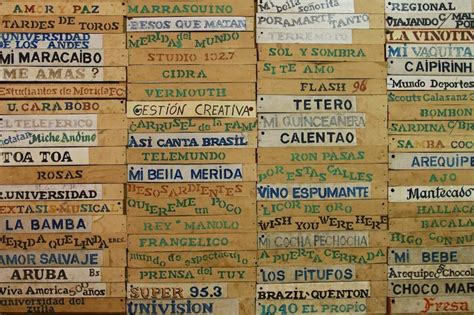 AMOR Y PAZ
TARDES DE TOROS
UNIVERSIDAD
DE LOS ANDES
MI MARACAIBO
ME AMAS?
Estudiantes de Mérida FC
U. CARABOBO
EL TELEFERICO
Miche Andino
TOA TOA
ROSAS
UNIVERSIDAD
EXTASIS-MUSICA
LA BAMBA
MERIDA QUE LINDA ERES
AMOR SALVAJE
ARUBA
Viva América
85 AÑOS
universidad del
zulia
MARRASQUINO
BESOS QUE MATAN
MERIDA DEL
MUNDO
STUDIO 102.7
CIDRA
VERMOUTH
GESTIÓN CREATIVA
CARRUSEL DE LA FAMA
ASÍ CANTA BRASIL
TELEMUNDO
MI BELLA MERIDA
BESOS ARDIENTES
QUIEREME UN POCO
REY MANOLO
FRANGELICO
mundo de espectáculo
PRENSA DEL TUY
SUPER 95.3
UNIVISION
Mi bella
señorita
PORAMARTE TANTO
TERRIBLE
SOL Y SOMBRA
SI TE AMO
FLASH 96
TETERO
MI QUINCEAÑERA
CALENTAO
RON PASAS
POR ESTAS CALLES
VINO ESPUMANTE
LICOR DE ORO
WISH YOU WERE HERE
MI COCHA PECHOCHA
A PUERTA CERRADA
LOS PITUFOS
BRAZIL-QUENTON
1040 EL PROPIO
REGIONAL
VIAJANDO
LA VINOTIN
MI VAQUITA
CAIPIRINH
Mundo Deportes
Scouts Calasanz
BOMBON
SARDINA
SAMBA COCO
AREQUIPE
AJO
Mantecado
HALLACA
BACALAO
HIGO CON NU
MI BEBE
Arequipe
Choco
CHOCO MAR
CAMPO